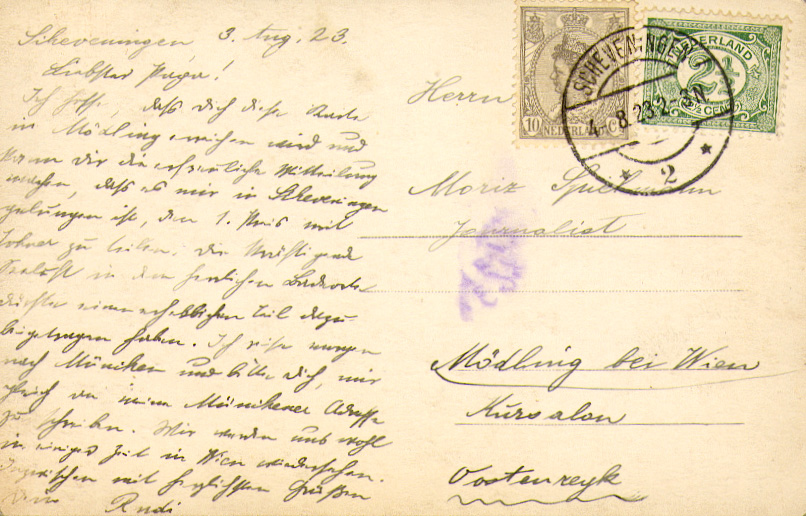 Scheveningen 3. Aug. 23.
Liebster Papa!
Ich hoffe, daß dich diese Karte
in Mödling erreichen wird und
kann Dir die erfreuliche Mitteilung
machen, daß es mir in Scheveningen
gelungen ist, den 1. Preis mit
Johner zu teilen. Die kräftigende
Seeluft in dem herrlichen Badeorte
dürfte einen erheblichen Teil dazu
beigetragen haben. Ich reise morgen
nach München und bitte dich, mir
gleich an meine Münchener Adresse
zu schreiben. Wir werden uns wohl
in einiger Zeit in Wien wiedersehen.
Inzwischen mit herzlichsten Grüßen
Dein Rudi
Herrn
Moriz Spielmann
Journalist
Mödling bei Wien
Kursalon
Oostenreyk
10 NEDERLAND 10 C
NEDERLAND
2½
2½ CENT
SCHEVENINGEN
4. 8. 23. 2-3N
2